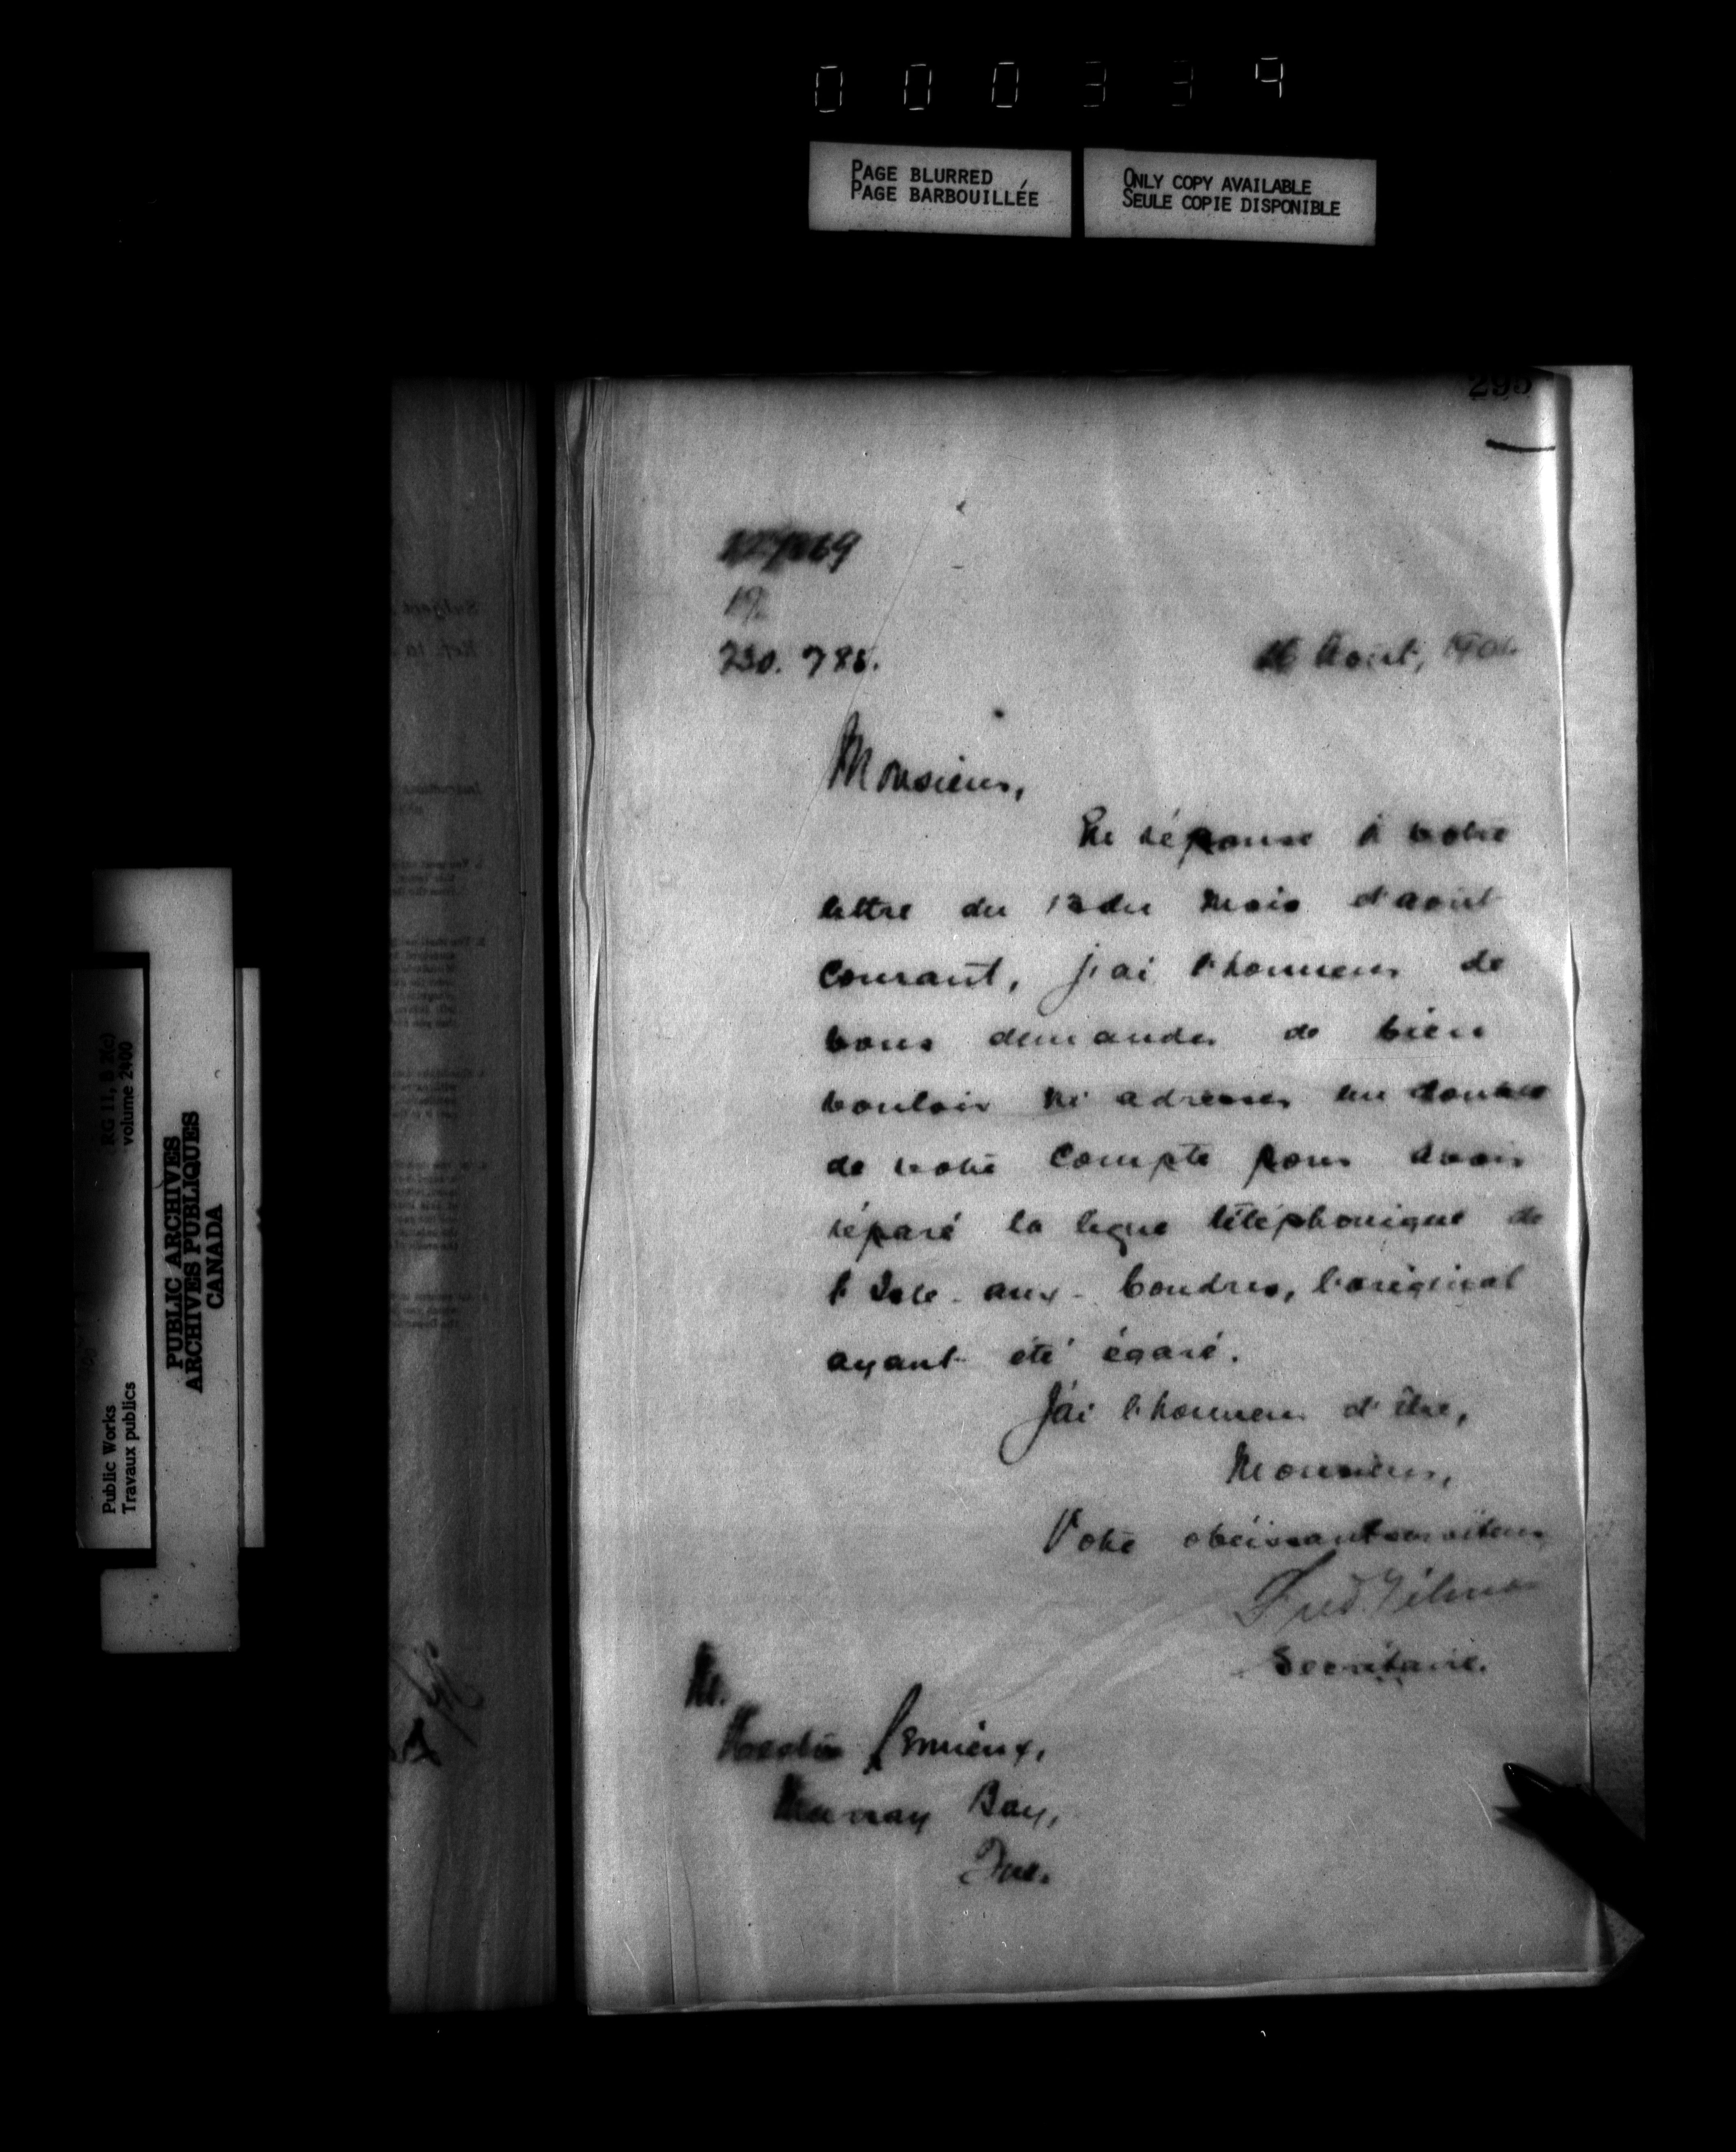 000339
PAGE BLURRED
PAGE BARBOUILLÉE
ONLY COPY AVAILABLE
SEULE COPIE DISPONIBLE
295
230.785.
Août, 
Monsieur,
En réponse à votre
lettre du 13 du mois d'août
courant, j'ai l'honneur de
vous demander de bien
vouloir m'adresser un double
de votre compte pour avoir
réparé la ligne téléphonique de
l'Isle-aux-Coudres, l'original
ayant été égaré.
J'ai l'honneur d'être,
Monsieur,
Votre obéissant serviteur
Fred. Gélinas
Secrétaire.
M.
Lemieux,
Murray Bay,
Que.
RG 11, B 2(c)
volume 2400
Public Works
Travaux publics
PUBLIC ARCHIVES
ARCHIVES PUBLIQUES
CANADA